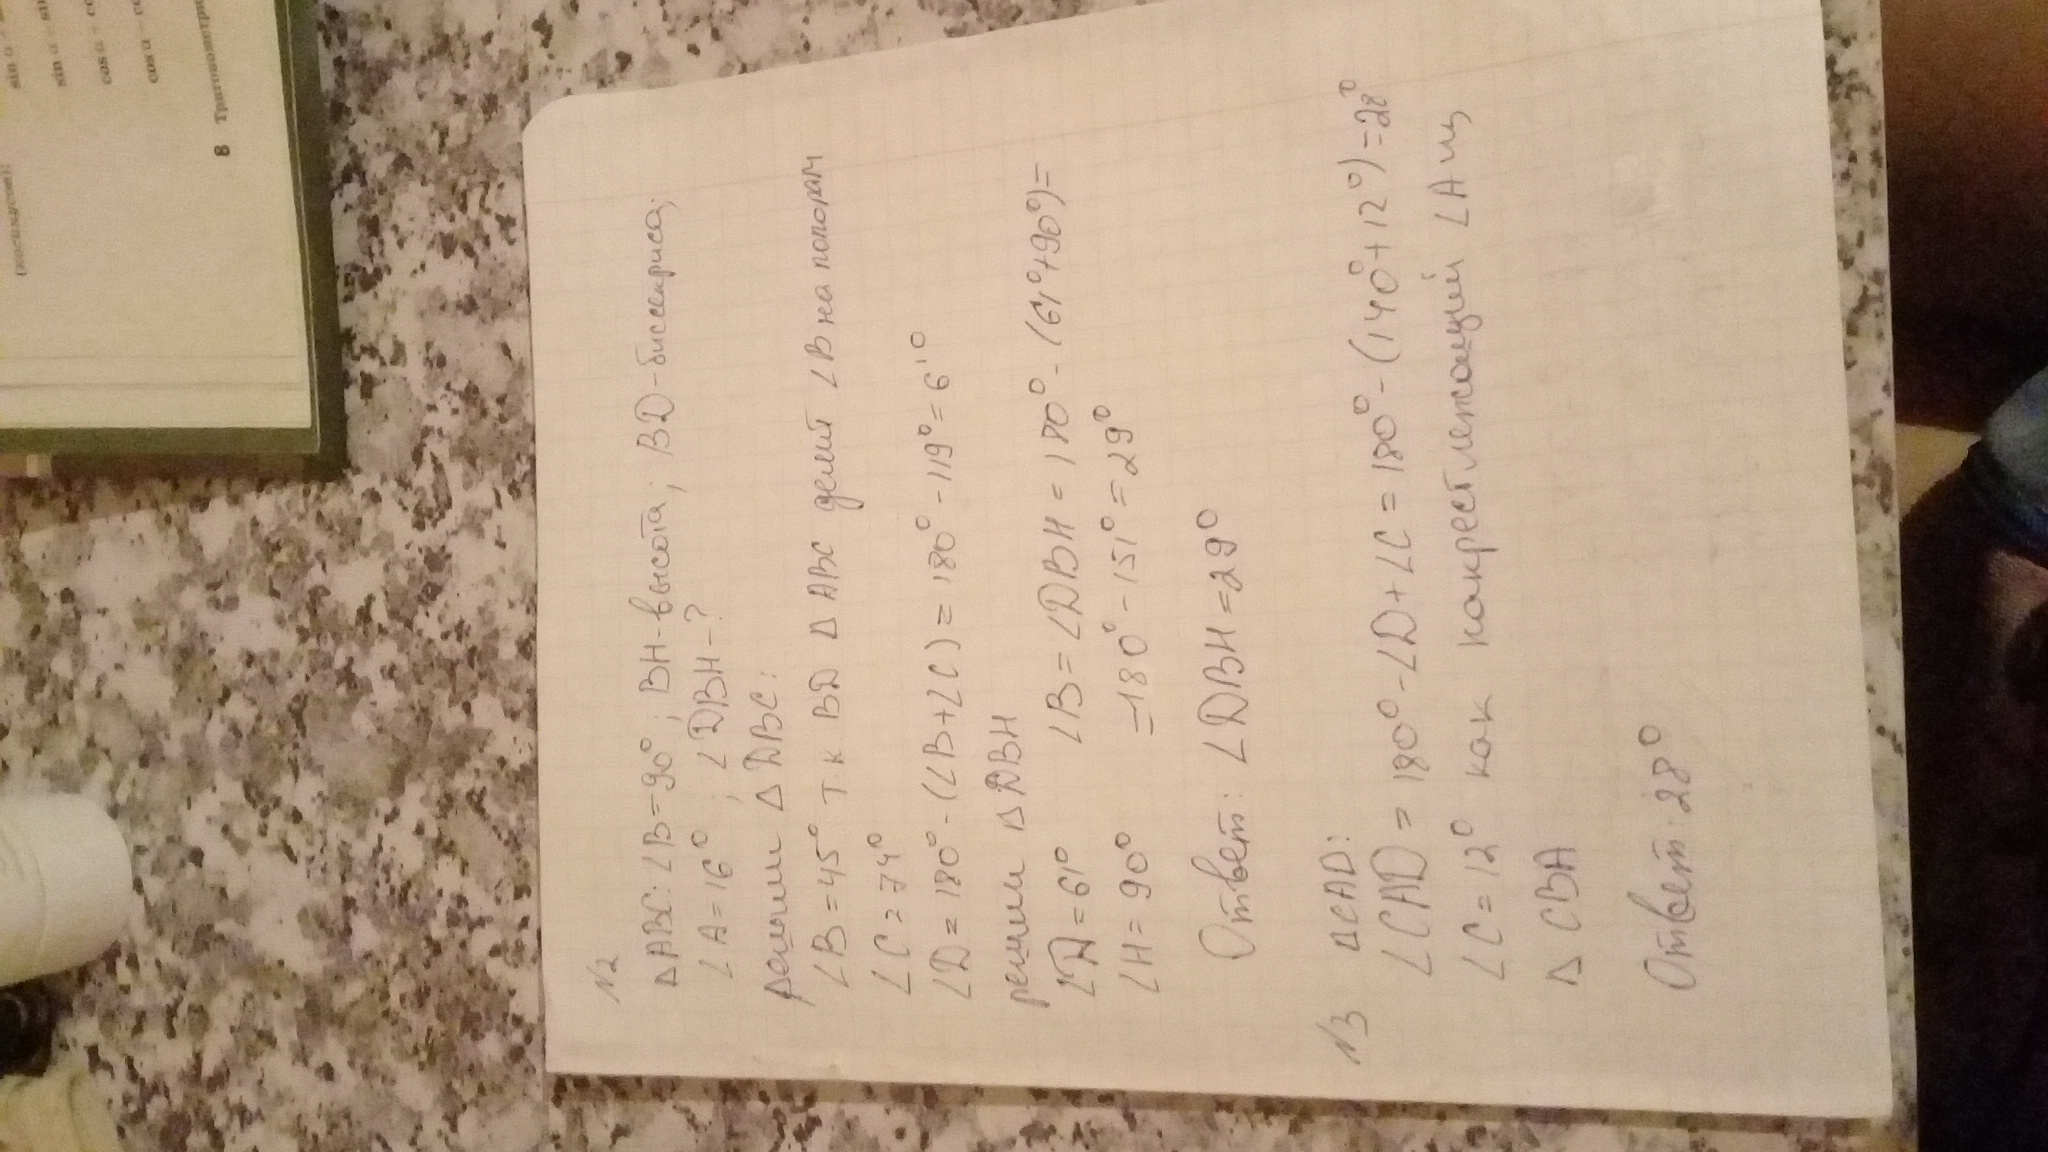 N2
Δ ABC: ∠B=90°; BH-высота; BD-биссектриса;
∠A=16°; ∠DBH-?
решим Δ DBC:
∠B=45° т к BD Δ ABC делит ∠B на попорам
∠C=74°
∠D=180°-(∠B+∠C)=180°-119°=61°
решим Δ DBH
∠D=61° ∠B=∠DBH=180°-(61°+90°)=
∠H=90° =180°-151°=29°
Ответ: ∠DBH=29°
N3 ΔCAD:
∠CAD=180°-∠D+∠C=180°-(140°+12°)=28°
∠C=12° как накрестлежащий ∠A иц
Δ CBA
Ответ: 28°
(косинусов):
sin α
sin α - sin
cos α + co
cos α - co
8 Тригонометри